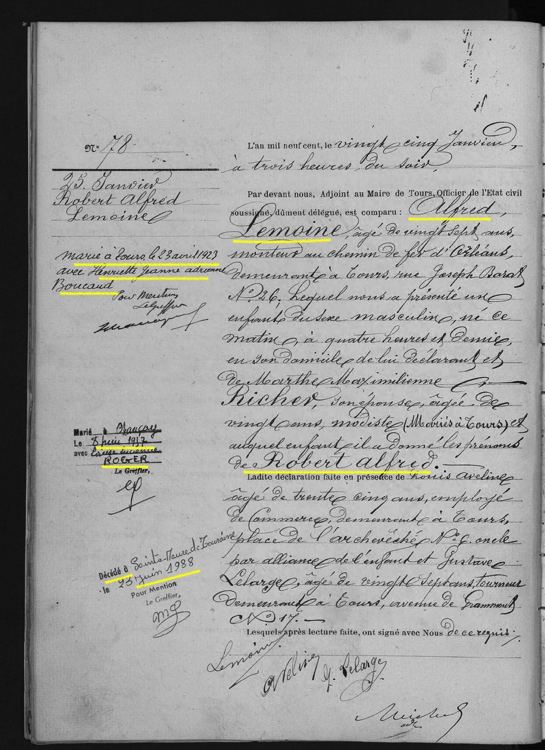 N° 78
25 Janvier
Robert Alfred
Lemoine
marié à Tours le 23 avril 1923
avec Henriette Jeanne adrienne
Boucaud
Pour Mention
Le Greffier
Marié à
Le 8 juin 1937
avec
ROGER
Le Greffier,
Décédé à Sainte-Maure-de-Touraine
le 23 juin 1988
Pour Mention
Le Greffier,
L'an mil neuf cent, le vingt cinq Janvier,
à trois heures du soir,
Par devant nous, Adjoint au Maire de Tours, Officier de l'Etat civil
soussigné, dûment délégué, est comparu : Alfred,
Lemoine, âgé de vingt sept ans,
monteur au chemin de fer d'Orléans,
demeurant à Tours, rue Joseph
N° 26, Lequel nous a présenté un
enfant du sexe masculin, né ce
matin, à quatre heures et demie,
en son domicile de lui déclarant et
de Marthe Maximilienne
Richer, son épouse, âgée de
vingt ans, modiste (Mariés à Tours) et
auquel enfant il a donné les prénoms
de Robert Alfred.
Ladite déclaration faite en présence de Louis Aveline
âgé de trente cinq ans, employé
de Commerce, demeurant à Tours,
place de l'archevêché N° 6, oncle
par alliance de l'enfant et Gustave
Lelarge, âgé de vingt sept ans, tourneur
demeurant à Tours, avenue de Grammont
N° 17.
Lesquels après lecture faite, ont signé avec Nous de ce requis.
Lemoine
Aveline
G. Lelarge